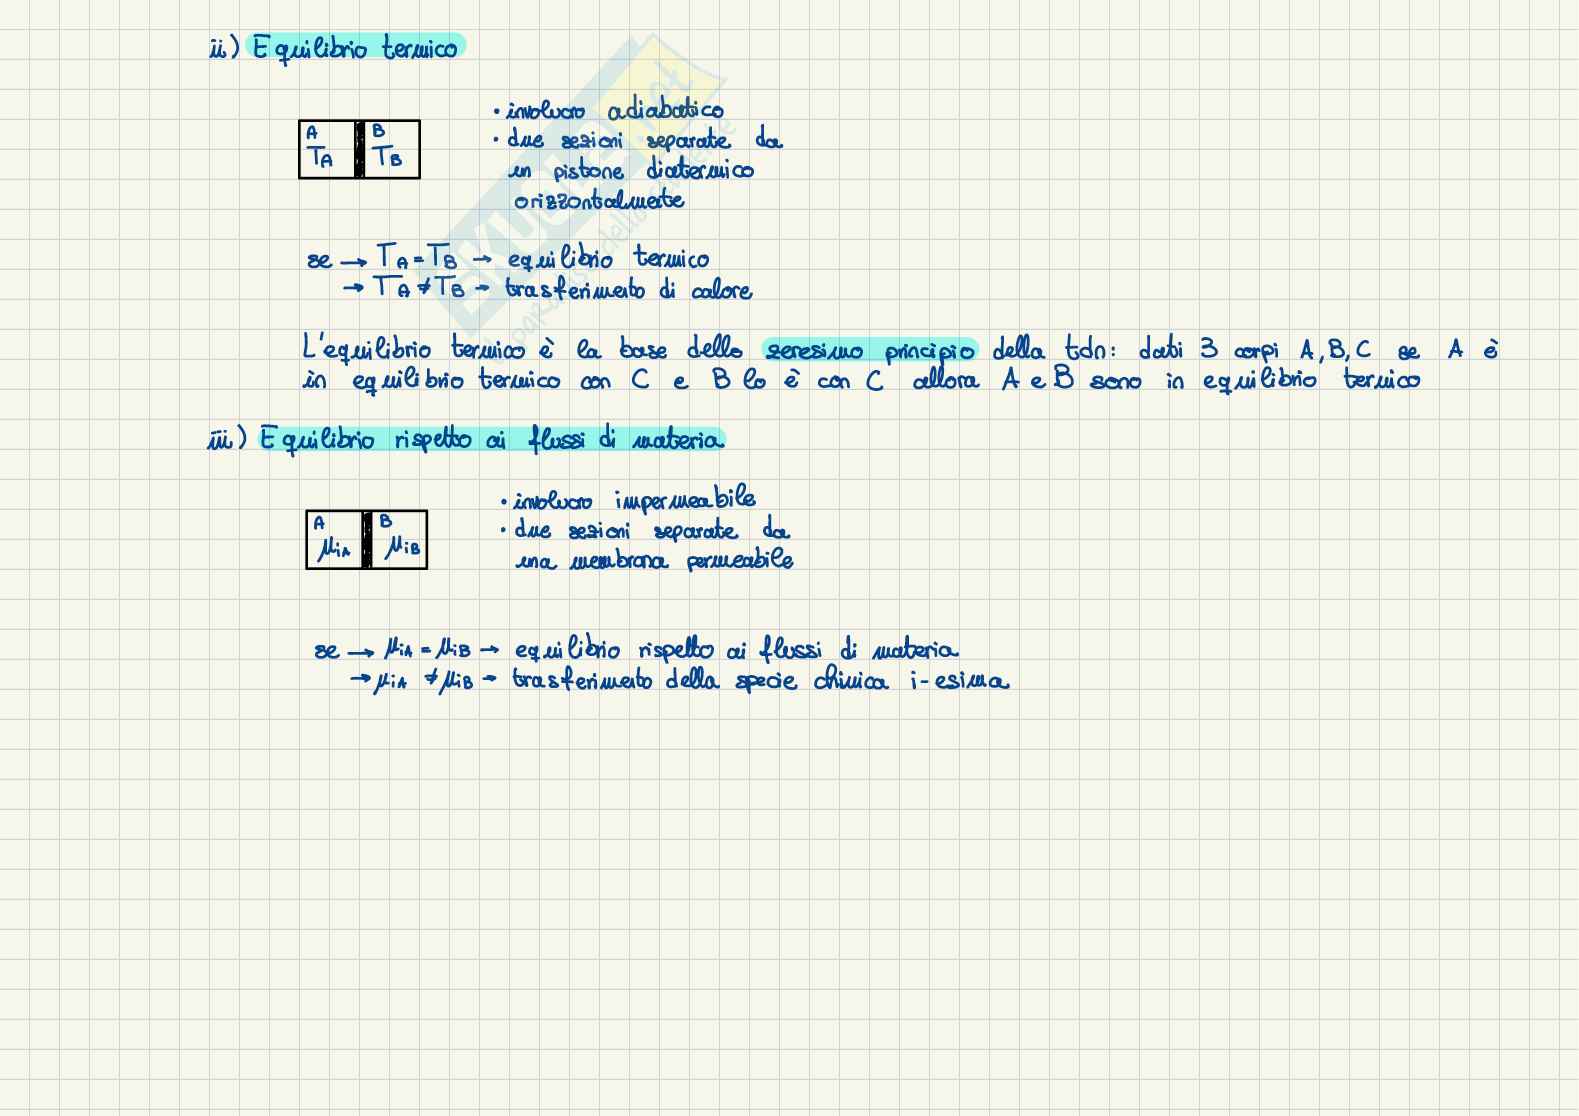 ii) Equilibrio termico
A B
TA TB
• involucro adiabatico
• due sezioni separate da
un pistone diatermico
orizzontalmente
se → TA = TB → equilibrio termico
→ TA ≠ TB → trasferimento di calore
L'equilibrio termico è la base dello zeresimo principio della tdn: dati 3 corpi A, B, C se A è
in equilibrio termico con C e B lo è con C allora A e B sono in equilibrio termico
iii) Equilibrio rispetto ai flussi di materia
A B
μiA μiB
• involucro impermeabile
• due sezioni separate da
una membrana permeabile
se → μiA = μiB → equilibrio rispetto ai flussi di materia
→ μiA ≠ μiB → trasferimento della specie chimica i-esima